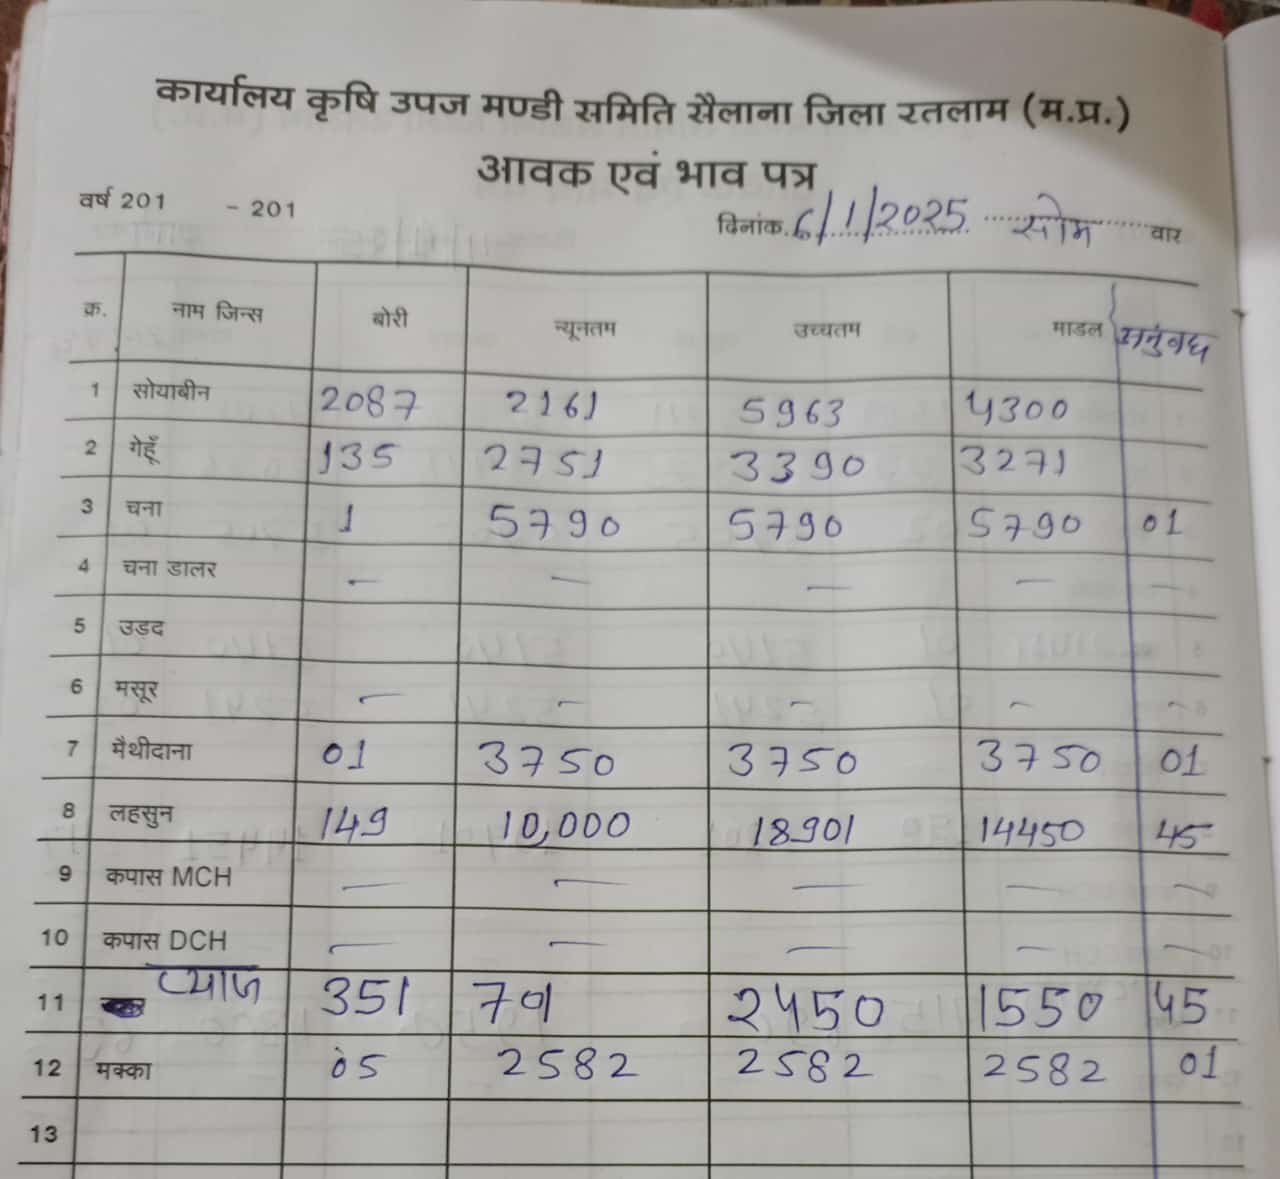 कार्यालय कृषि उपज मण्डी समिति सैलाना जिला रतलाम (म.प्र.)
आवक एवं भाव पत्र
वर्ष 201 - 201 दिनांक. 6/1/2025 सोम वार
क्र. नाम जिन्स बोरी न्यूनतम उच्चतम माडल अनुंबध
1 सोयाबीन 2087 2161 5963 4300
2 गेहूँ 135 2751 3390 3271
3 चना 1 5790 5790 5790 01
4 चना डालर — — — — —
5 उड़द
6 मसूर — — — — —
7 मैथीदाना 01 3750 3750 3750 01
8 लहसुन 149 10,000 18901 14450 45
9 कपास MCH — — — — —
10 कपास DCH — — — — —
11 प्याज 351 791 2450 1550 45
12 मक्का 05 2582 2582 2582 01
13